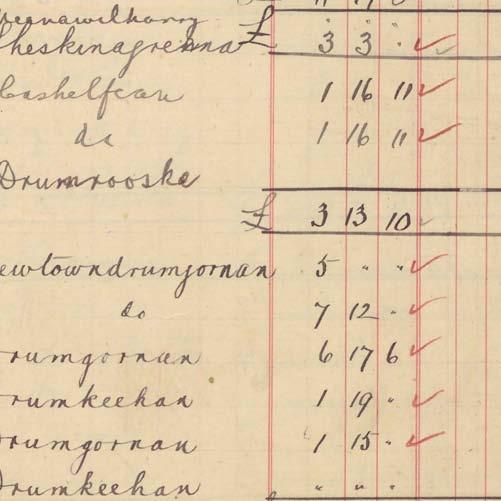 £ 3 3 "
Cashelfean 1 16 11
do 1 16 11
Drumrooske
£ 3 13 10
ewtowndrumgornan 5 " "
do 7 12 "
rumgornan 6 17 6
rumkeehan 1 19 "
rumgornan 1 15 "
Drumkeehan " " "